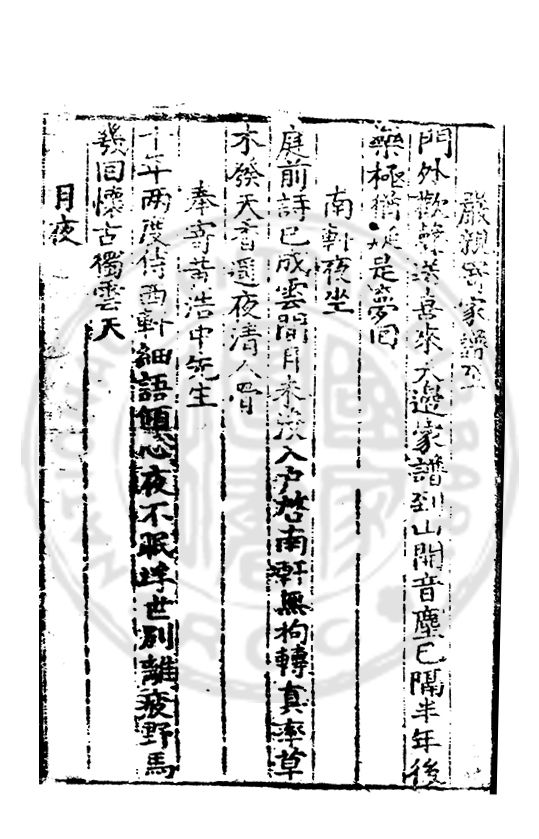 嚴親寄家譜至
門外歡聲送喜來天邊家譜到山開音塵已隔半年後
藥極猶疑是夢回
南軒夜坐
庭前詩已成雲間月来入戶啓南軒無拘轉真率草
木發天香還夜清人
奉寄黃浩中先生
十年两度侍西軒細語傾心夜不眠浮世别離疲野馬
幾回懷古獨雲天
月夜